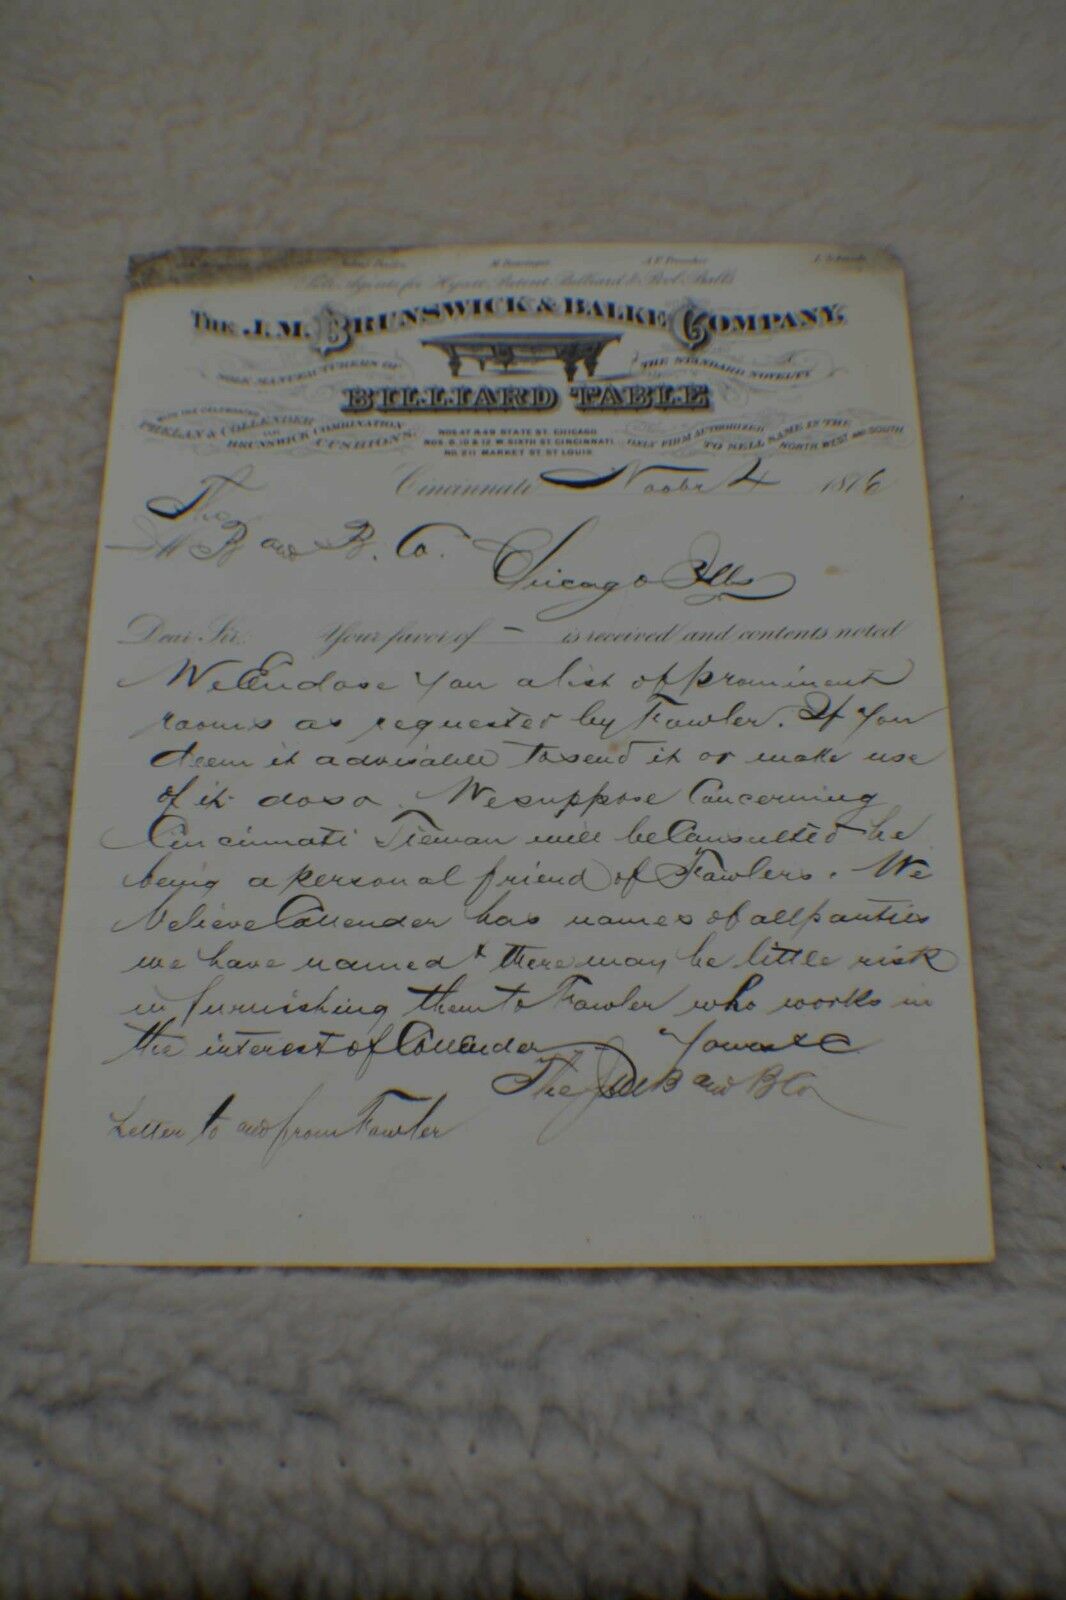 Sole Agents for Hyatt Patent Billiard & Pool Balls
THE J. M. BRUNSWICK & BALKE COMPANY.
MANUFACTURERS OF
THE STANDARD NOVELTY
BILLIARD TABLE
WITH THE CELEBRATED
PHELAN & COLLENDER
AND
BRUNSWICK COMBINATION
CUSHIONS.
NOS. 47 & 49 STATE ST. CHICAGO
NOS. 8, 10 & 12 W. SIXTH ST. CINCINNATI.
NO. 211 MARKET ST. ST LOUIS
ONLY FIRM AUTHORIZED
TO SELL SAME IN THE
NORTH, WEST AND SOUTH
Cincinnati Novbr 4 1876
The
JM B and B. Co.
Chicago Ills
Dear Sir: Your favor of – is received and contents noted
We Enclose you a list of prominent
rooms as requested by Fowler. If you
deem it advisable to send it or make use
of it do so. We suppose Concerning
Cincinnati Tieman will be Consulted he
being a personal friend of Fowlers. We
believe Collender has names of all parties
we have named & there may be little risk
in furnishing them to Fowler who works in
the interest of Collender Yours &c
The JM B and B Co
Letter to and from Fowler